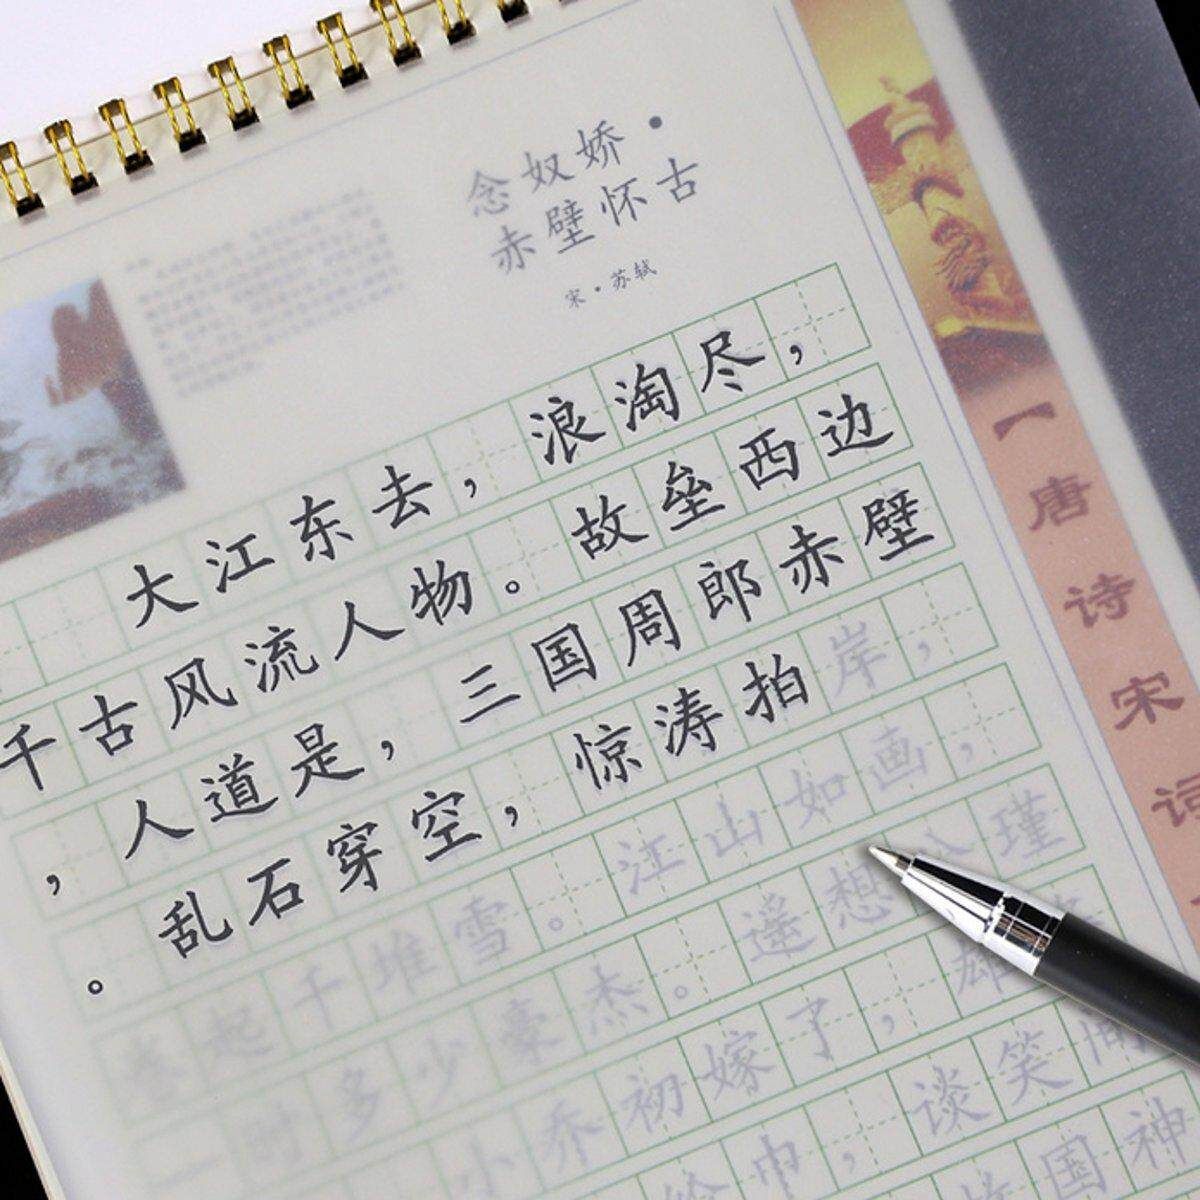 念奴娇·
赤壁怀古
宋·苏轼
大江东去,浪淘尽,
千古风流人物。故垒西边
,人道是,三国周郎赤壁
。乱石穿空,惊涛拍岸,
卷起千堆雪。江山如画,
一时多少豪杰。遥想公瑾
小乔初嫁了,雄
纶巾,谈笑间
国神
【唐诗宋词